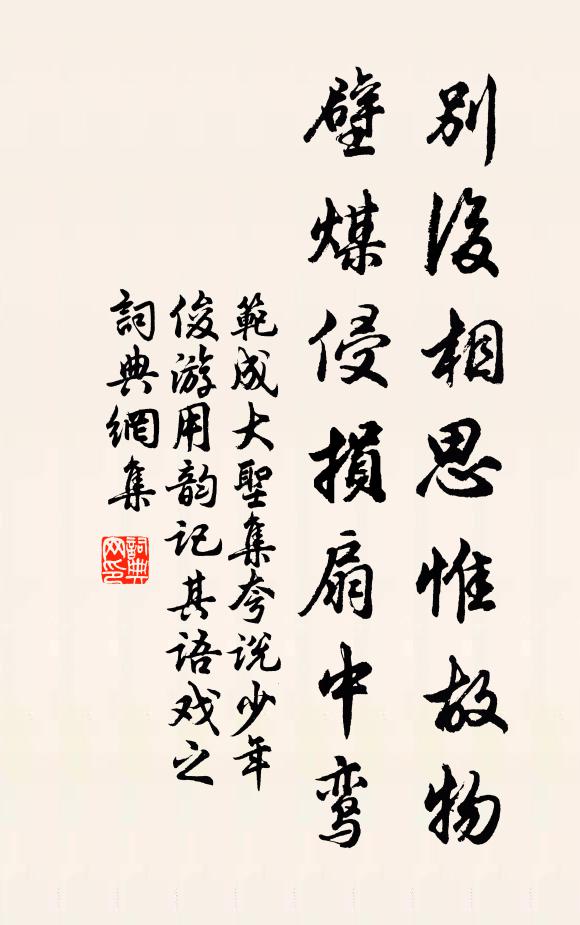 別後相思惟故物
壁煤侵損扇中鸾
範成大聖集夸说少年
俊游用韵记其语戏之
詞典網集
詞典网印